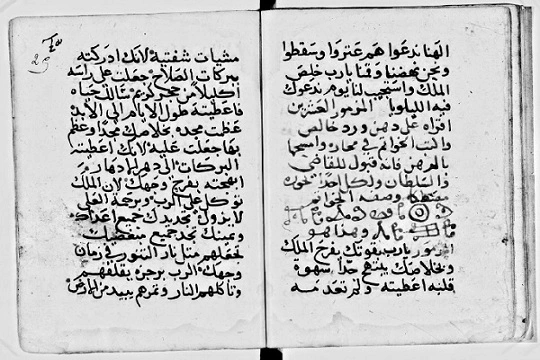 الهنا ندعوا هم عتروا وسقطوا
ونحن نهضنا وقمنا يارب خلص
الملك واستجيب لنا يوم ندعوك
فيه الليلويا المزمور العشرين
اقراه على دهن ورد خالص
واكتب الخواتم في وامسحها
بالدهن فانه قبول للقاضي
ذا السلطان ولكل احد
وصفه الخواتم
وهذا هو
المزمور يارب بقوتك يفرح الملك
وبخلاصك يبتهج جدا شهوة
قلبه اعطيته ولم تعدمه
29
مشيات شفتيه لانك ادركته
ببركات الصلاح جعلت على راسه
اكليلا من حجر كريم سالك حياه
فاعطيته طول الايام الى الابد
عظمت مجده بخلاصك مجدا وعظم
بها جعلت عليه لانك اعطيته
البركات الى دهر
ابهجته بفرح وجهك لان الملك
توكل على الرب وبرحمة العلي
لا يزول تجد يدك جميع اعداك
ويمينك تجد جميع مبغضيك
تجعلهم متل نار التنور في زمان
وجهك الرب برجزه يقلقهم
وتاكلهم النار وتمرهم يبيد من الارض